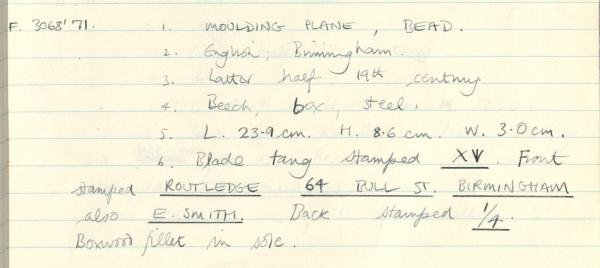 F. 3068'71. 1. MOULDING PLANE, BEAD.
2. English; Birmingham.
3. Latter half 19th century.
4. Beech, box, steel.
5. L. 23.9 cm. H. 8.6 cm. W. 3.0 cm.
6. Blade tang stamped XV. Front
stamped ROUTLEDGE 64 BULL ST. BIRMINGHAM
also E. SMITH. Back stamped 1/4.
Boxwood fillet in sole.